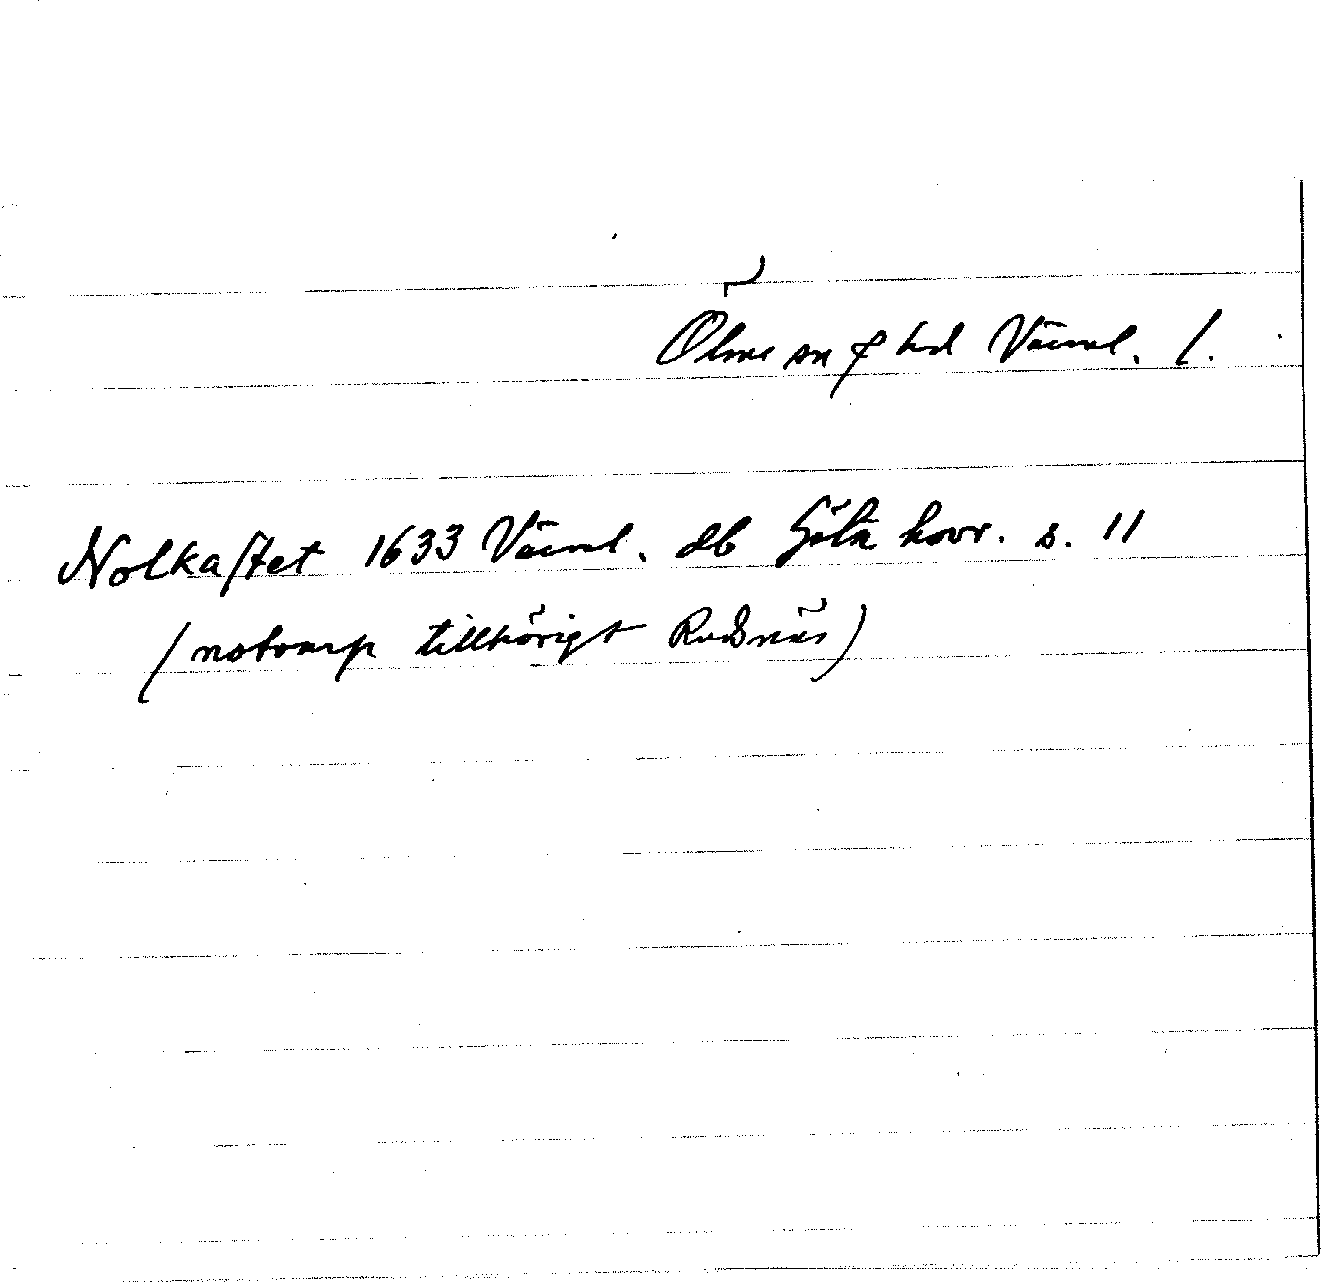 Ölme sn o hd Värml. l.
Nolkaſtet 1633 Värml. db Göta hovr. s. 11
(notvarp tillhörigt Rudsnäs)